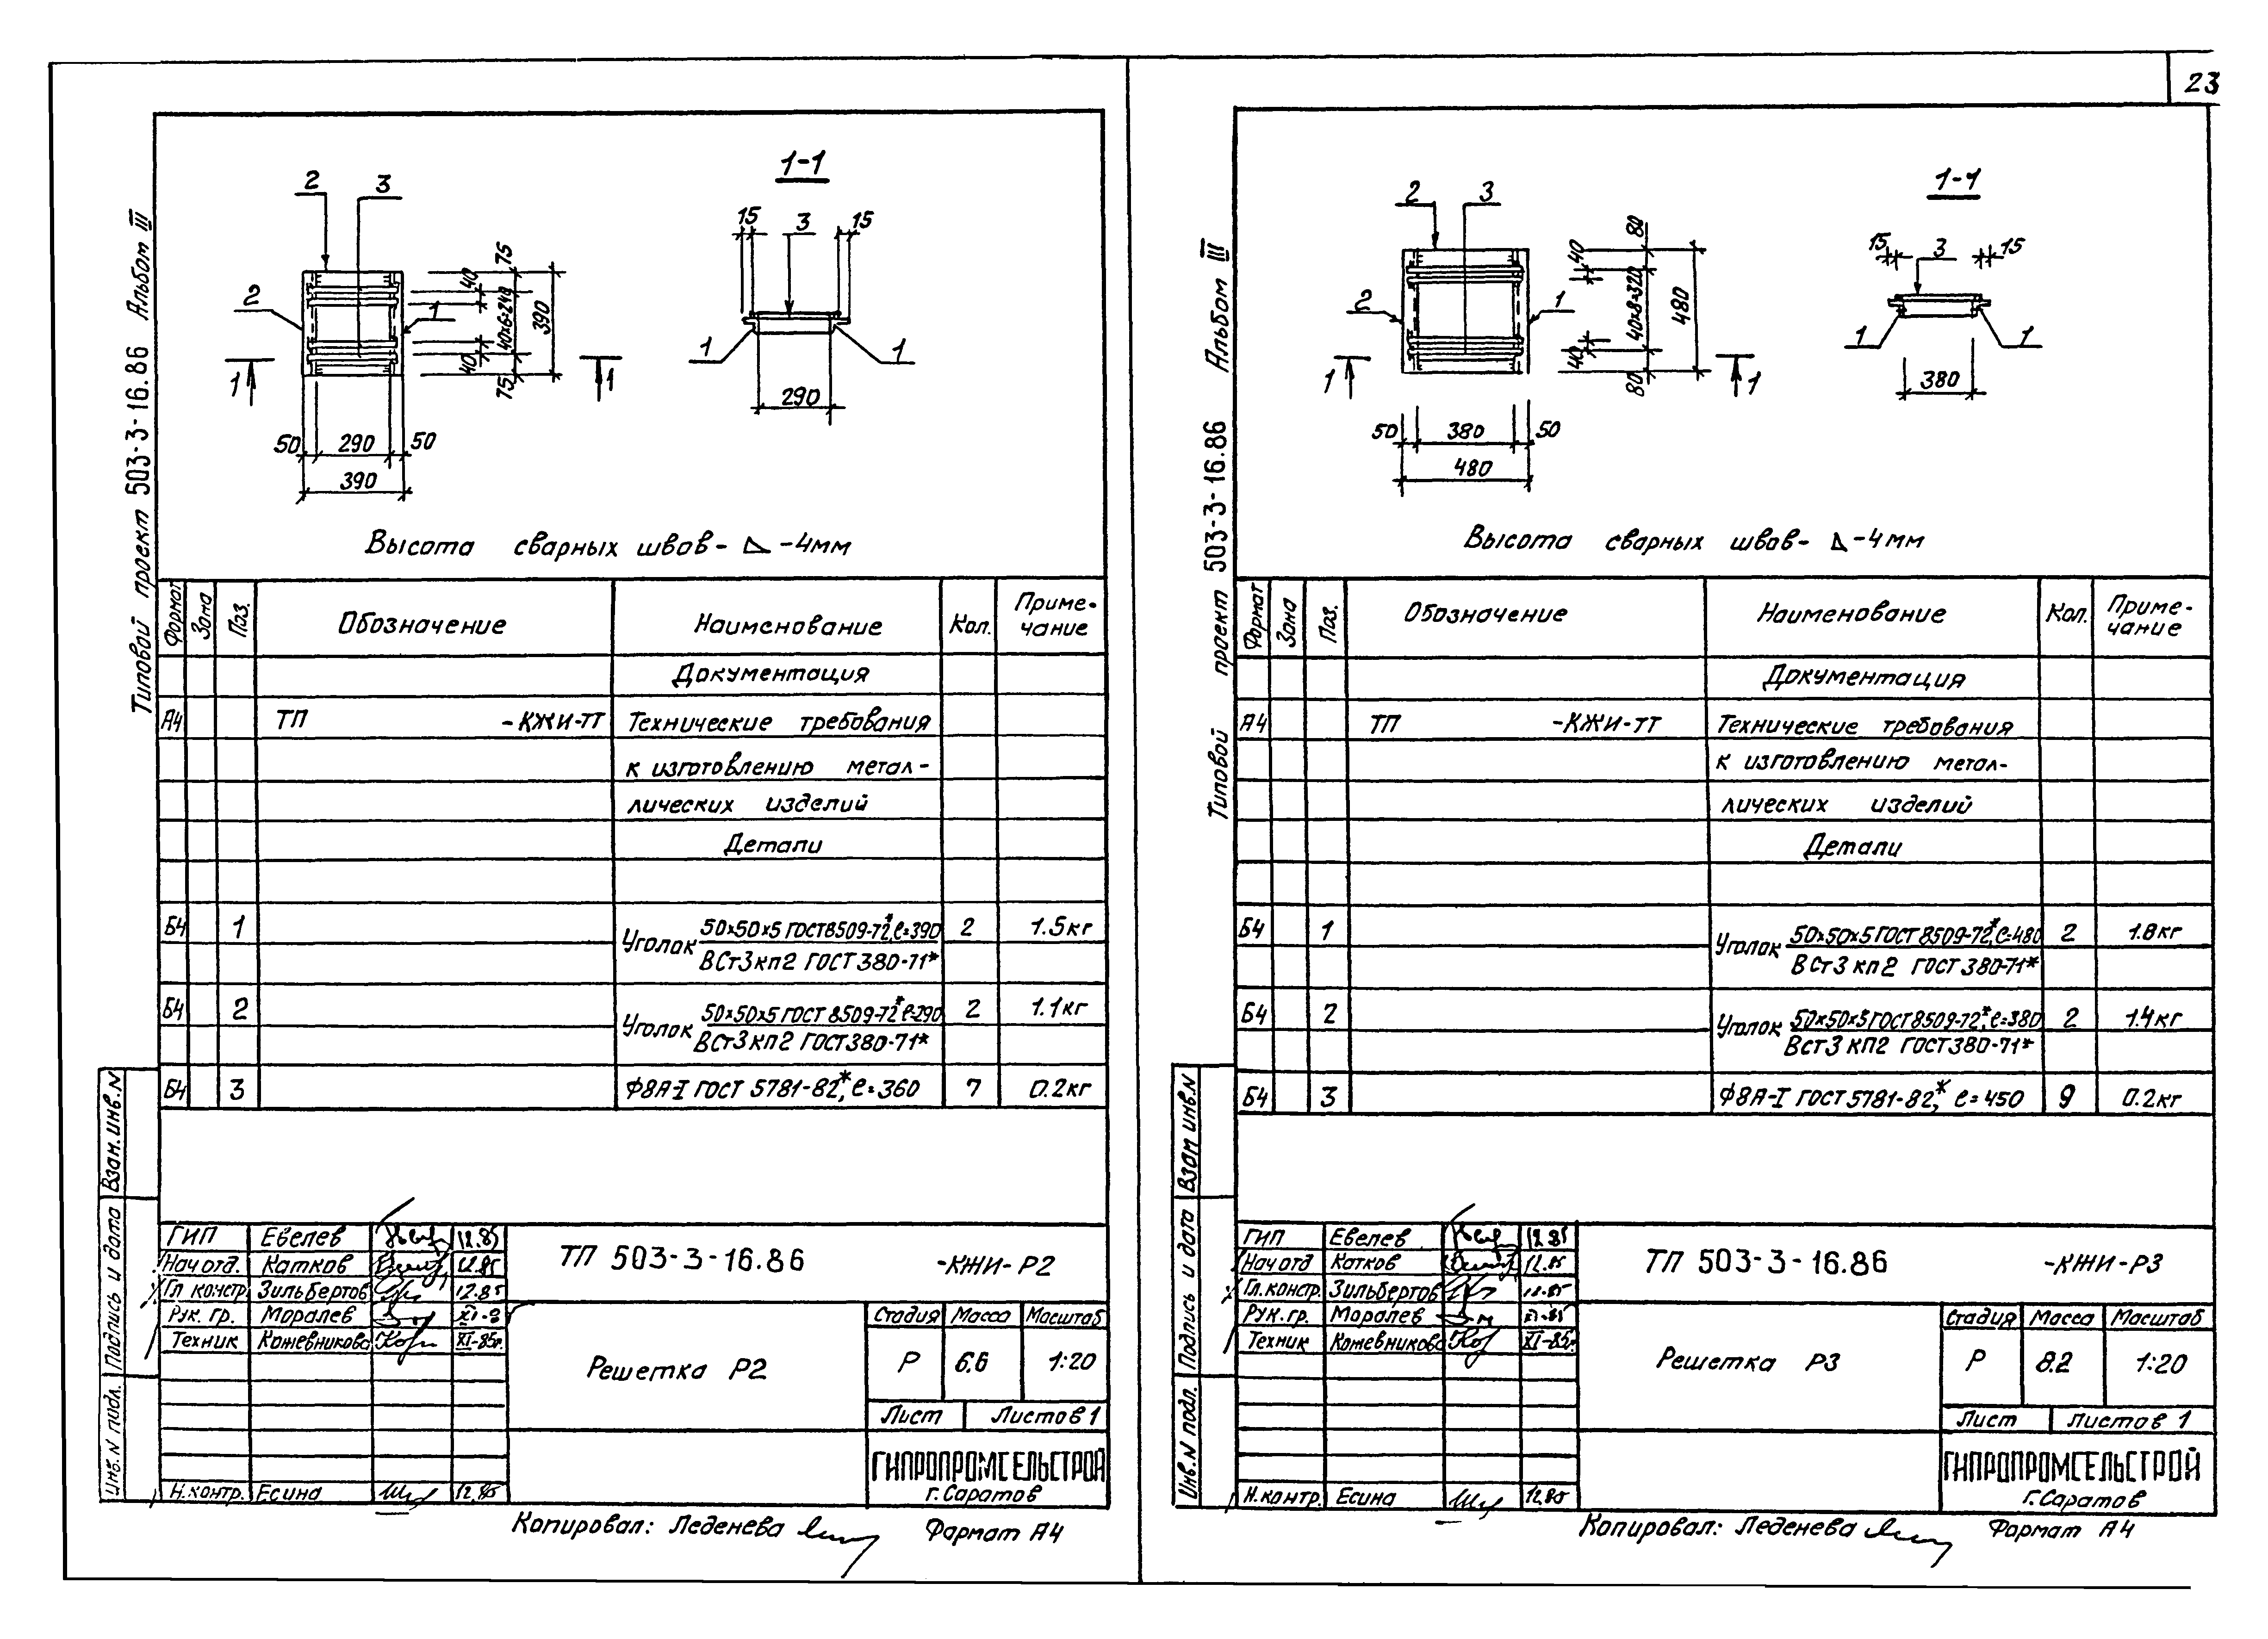 23
Типовой проект 503-3-16.86 Альбом III
1-1
2 3
2 1
1 1
40 75
40×6=240 390
40 75
50 290 50
390
15 3 15
1 1
290
Высота сварных швов - ⊿ -4мм
Формат Зона Поз. Обозначение Наименование Кол. Приме-
чание
Документация
А4 ТП -КЖИ-ТТ Технические требования
к изготовлению метал-
лических изделий
Детали
Б4 1 Уголок 50×50×5 ГОСТ 8509-72*, ℓ=390 2 1.5кг
ВСт3кп2 ГОСТ 380-71*
Б4 2 Уголок 50×50×5 ГОСТ 8509-72* ℓ=290 2 1.1кг
ВСт3кп2 ГОСТ 380-71*
Б4 3 Ф8А-I ГОСТ 5781-82*, ℓ=360 7 0.2кг
Взам.инв.N
Подпись и дата
Инв.N подл.
ГИП Евелев 12.85
Нач отд. Катков 12.85
Гл констр. Зильбертов 12.85
Рук. гр. Моралев
Техник Кожевникова XI-85г.
Н.контр. Есина 12.85
ТП 503-3-16.86 -КЖИ-Р2
Решетка Р2
Стадия Масса Масштаб
Р 6.6 1:20
Лист Листов 1
ГИПРОПРОМСЕЛЬСТРОЙ
г.Саратов
Копировал: Леденева Формат А4
Типовой проект 503-3-16.86 Альбом III
1-1
2 3
2 1
1 1
40 80
40×8=320 480
40 80
50 380 50
480
15 3 15
1 1
380
Высота сварных швов - ⊿ -4мм
Формат Зона Поз. Обозначение Наименование Кол. Приме-
чание
Документация
А4 ТП -КЖИ-ТТ Технические требования
к изготовлению метал-
лических изделий
Детали
Б4 1 Уголок 50×50×5 ГОСТ 8509-72*, ℓ=480 2 1.8кг
ВСт3кп2 ГОСТ 380-71*
Б4 2 Уголок 50×50×5 ГОСТ 8509-72*, ℓ=380 2 1.4кг
ВСт3 кп2 ГОСТ 380-71*
Б4 3 Ф8А-I ГОСТ 5781-82,* ℓ=450 9 0.2кг
Взам инв.N
Подпись и дата
Инв.N подл.
ГИП Евелев 12.85
Нач отд Катков 12.85
Гл. констр. Зильбертов 12.85
Рук. гр. Моралев XI-85
Техник Кожевникова XI-85г.
Н.контр. Есина 12.85
ТП 503-3-16.86 -КЖИ-Р3
Решетка Р3
Стадия Масса Масштаб
Р 8.2 1:20
Лист Листов 1
ГИПРОПРОМСЕЛЬСТРОЙ
г.Саратов
Копировал: Леденева Формат А4